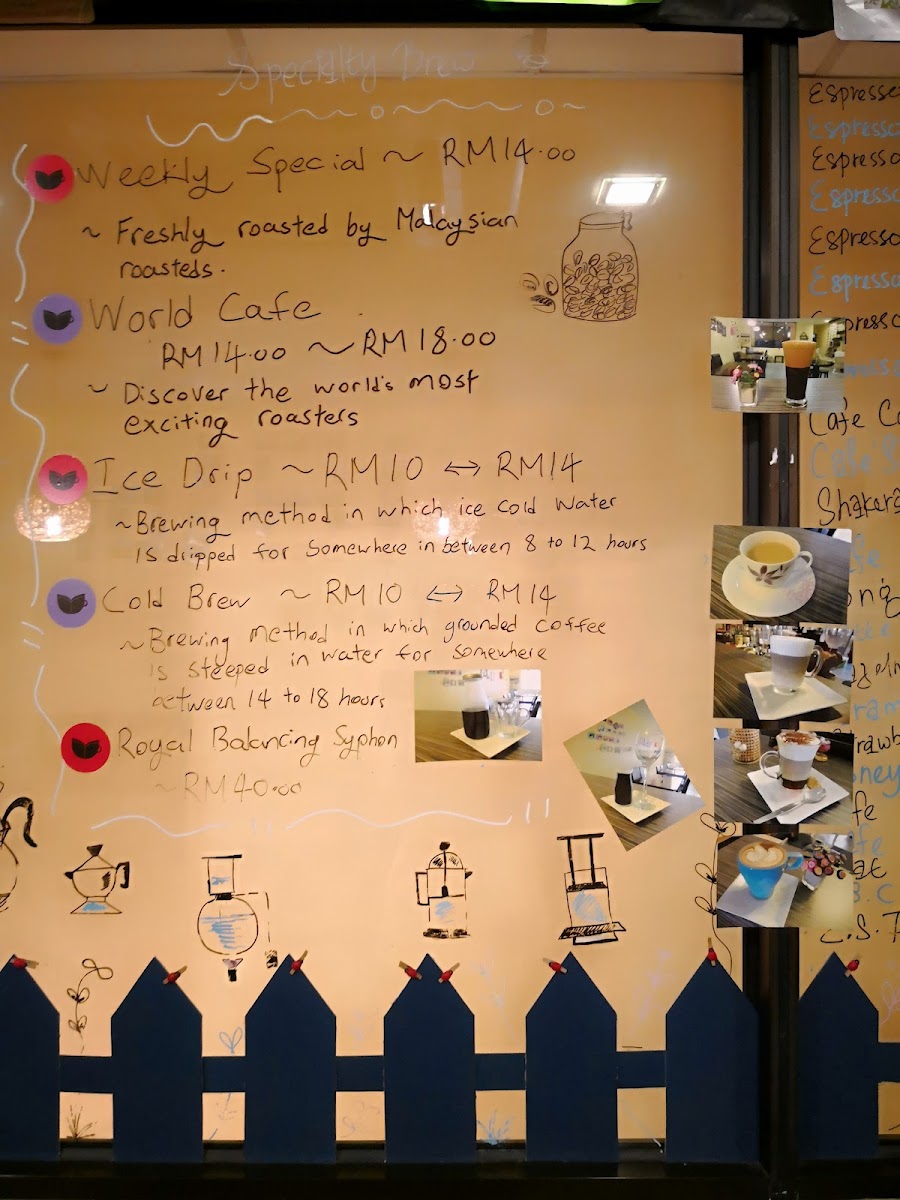 Specialty Brew
Weekly Special ~ RM14.00
~ Freshly roasted by Malaysian
roasteds.
World Cafe
RM14.00 ~ RM18.00
~ Discover the world's most
exciting roasters
Ice Drip ~ RM10 ↔ RM14
~ Brewing method in which ice cold water
is dripped for somewhere in between 8 to 12 hours
Cold Brew ~ RM10 ↔ RM14
~ Brewing method in which grounded coffee
is steeped in water for somewhere
between 14 to 18 hours
Royal Balancing Syphon
~ RM40.00
Espresso
Espresso
Espresso
Espresso
Espresso
Espresso
Cafe
Cafe